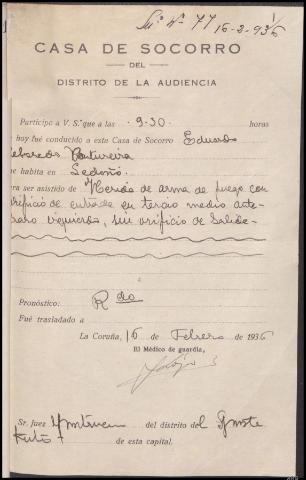 Nº 77 16-2-936
CASA DE SOCORRO
DEL
DISTRITO DE LA AUDIENCIA
Participo a V. S.ª que a las 9-30 horas
hoy fué conducido a esta Casa de Socorro Eduardo
e habita en Sedoño.
ra ser asistido de Herida de arma de fuego con
orificio de entrada en tercio medio ante-
brazo izquierdo, sin orificio de salida-
Pronóstico: Rdo
Fué trasladado a
La Coruña, 16 de Febrero de 1936
El Médico de guardia,
Sr. Juez del distrito del
de esta capital.